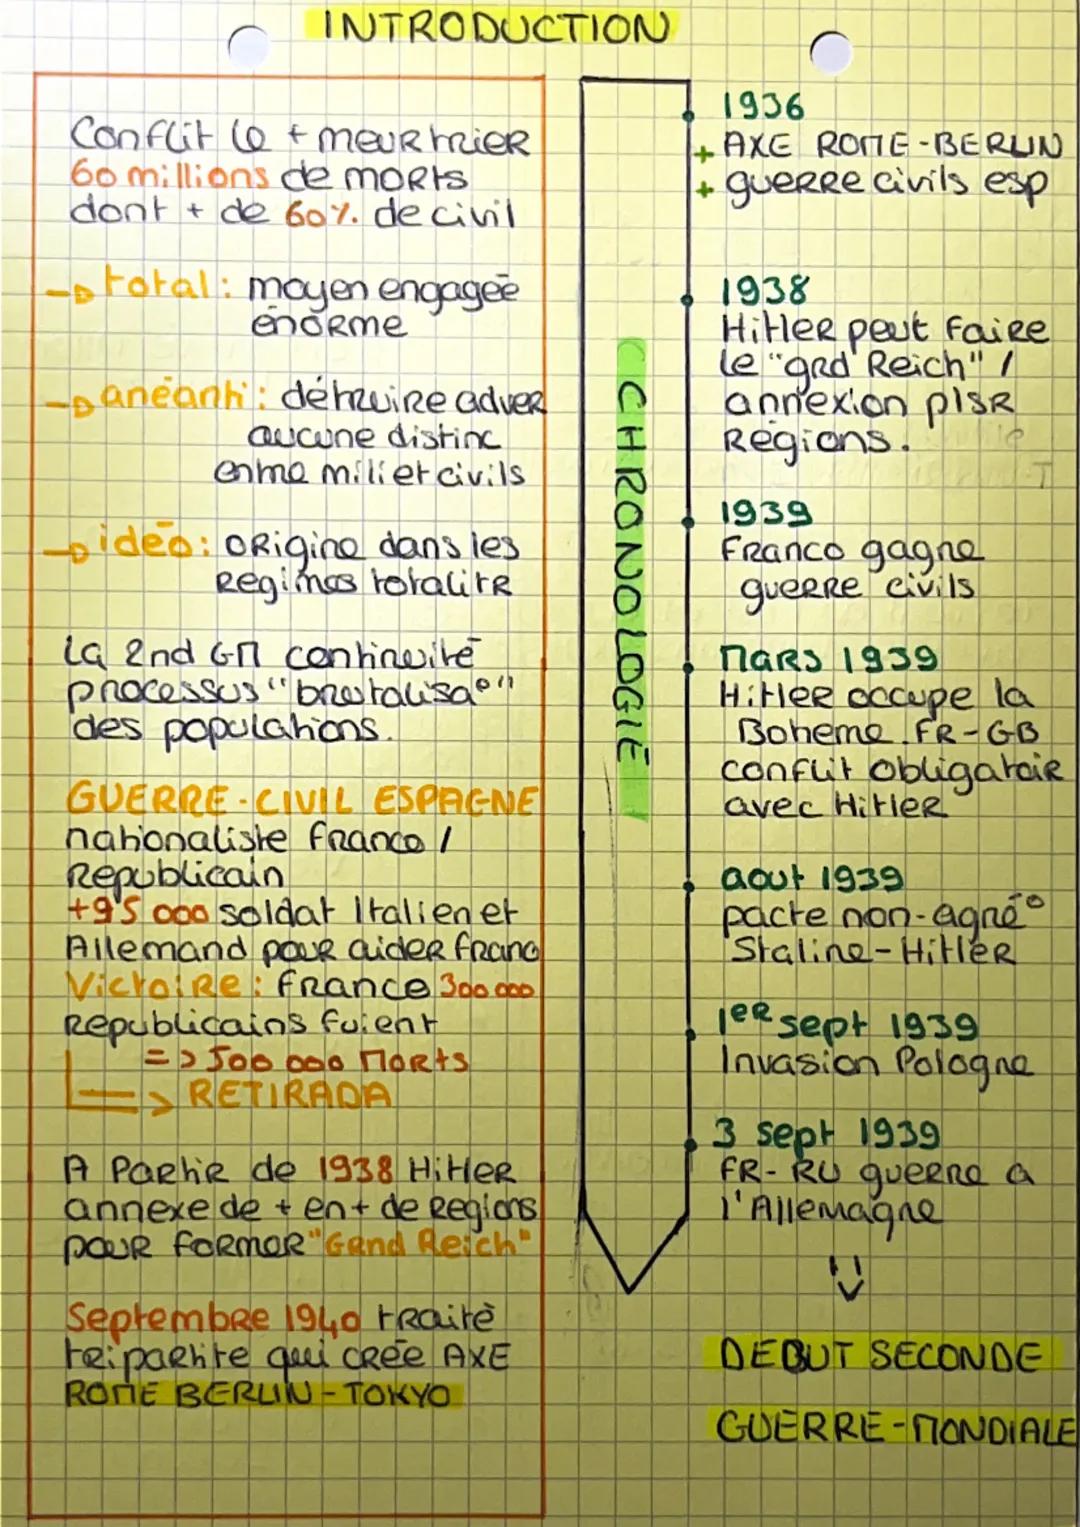 INTRODUCTION
Conflit le + meurtrier
60 millions de morts
dont + de 60% de civil
→ total : moyen engagée
énorme
→ anéanti : détruire adver
aucune distinc
entre mili et civils
→ idéo : origine dans les
Regimes totalitr
La 2nd GM continuité
processus "brutalisa°"
des populations.
GUERRE-CIVIL ESPAGNE
nationaliste Franco /
Republicain
+95 000 soldat Italien et
Allemand pour aider franc
Victoire : france 300 000
Republicains fuient
=> 500 000 Morts
=> RETIRADA
A Partir de 1938 Hitler
annexe de + en + de Regions
pour former "Grnd Reich"
Septembre 1940 traité
tripartite qui crée AXE
ROME BERLIN-TOKYO
CHRONOLOGIE
1936
+ AXE ROME-BERLIN
+ guerre civils esp
1938
Hitler peut faire
le "grd Reich" /
annexion plsr
Régions.
1939
Franco gagne
guerre civils
Mars 1939
Hitler occupe la
Boheme. FR-GB
conflit obligatoir
avec Hitler
aout 1939
pacte non-agré°
Staline-Hitler
1er sept 1939
Invasion Pologne
3 sept 1939
FR-RU guerre a
l'Allemagne
DEBUT SECONDE
GUERRE-MONDIALE